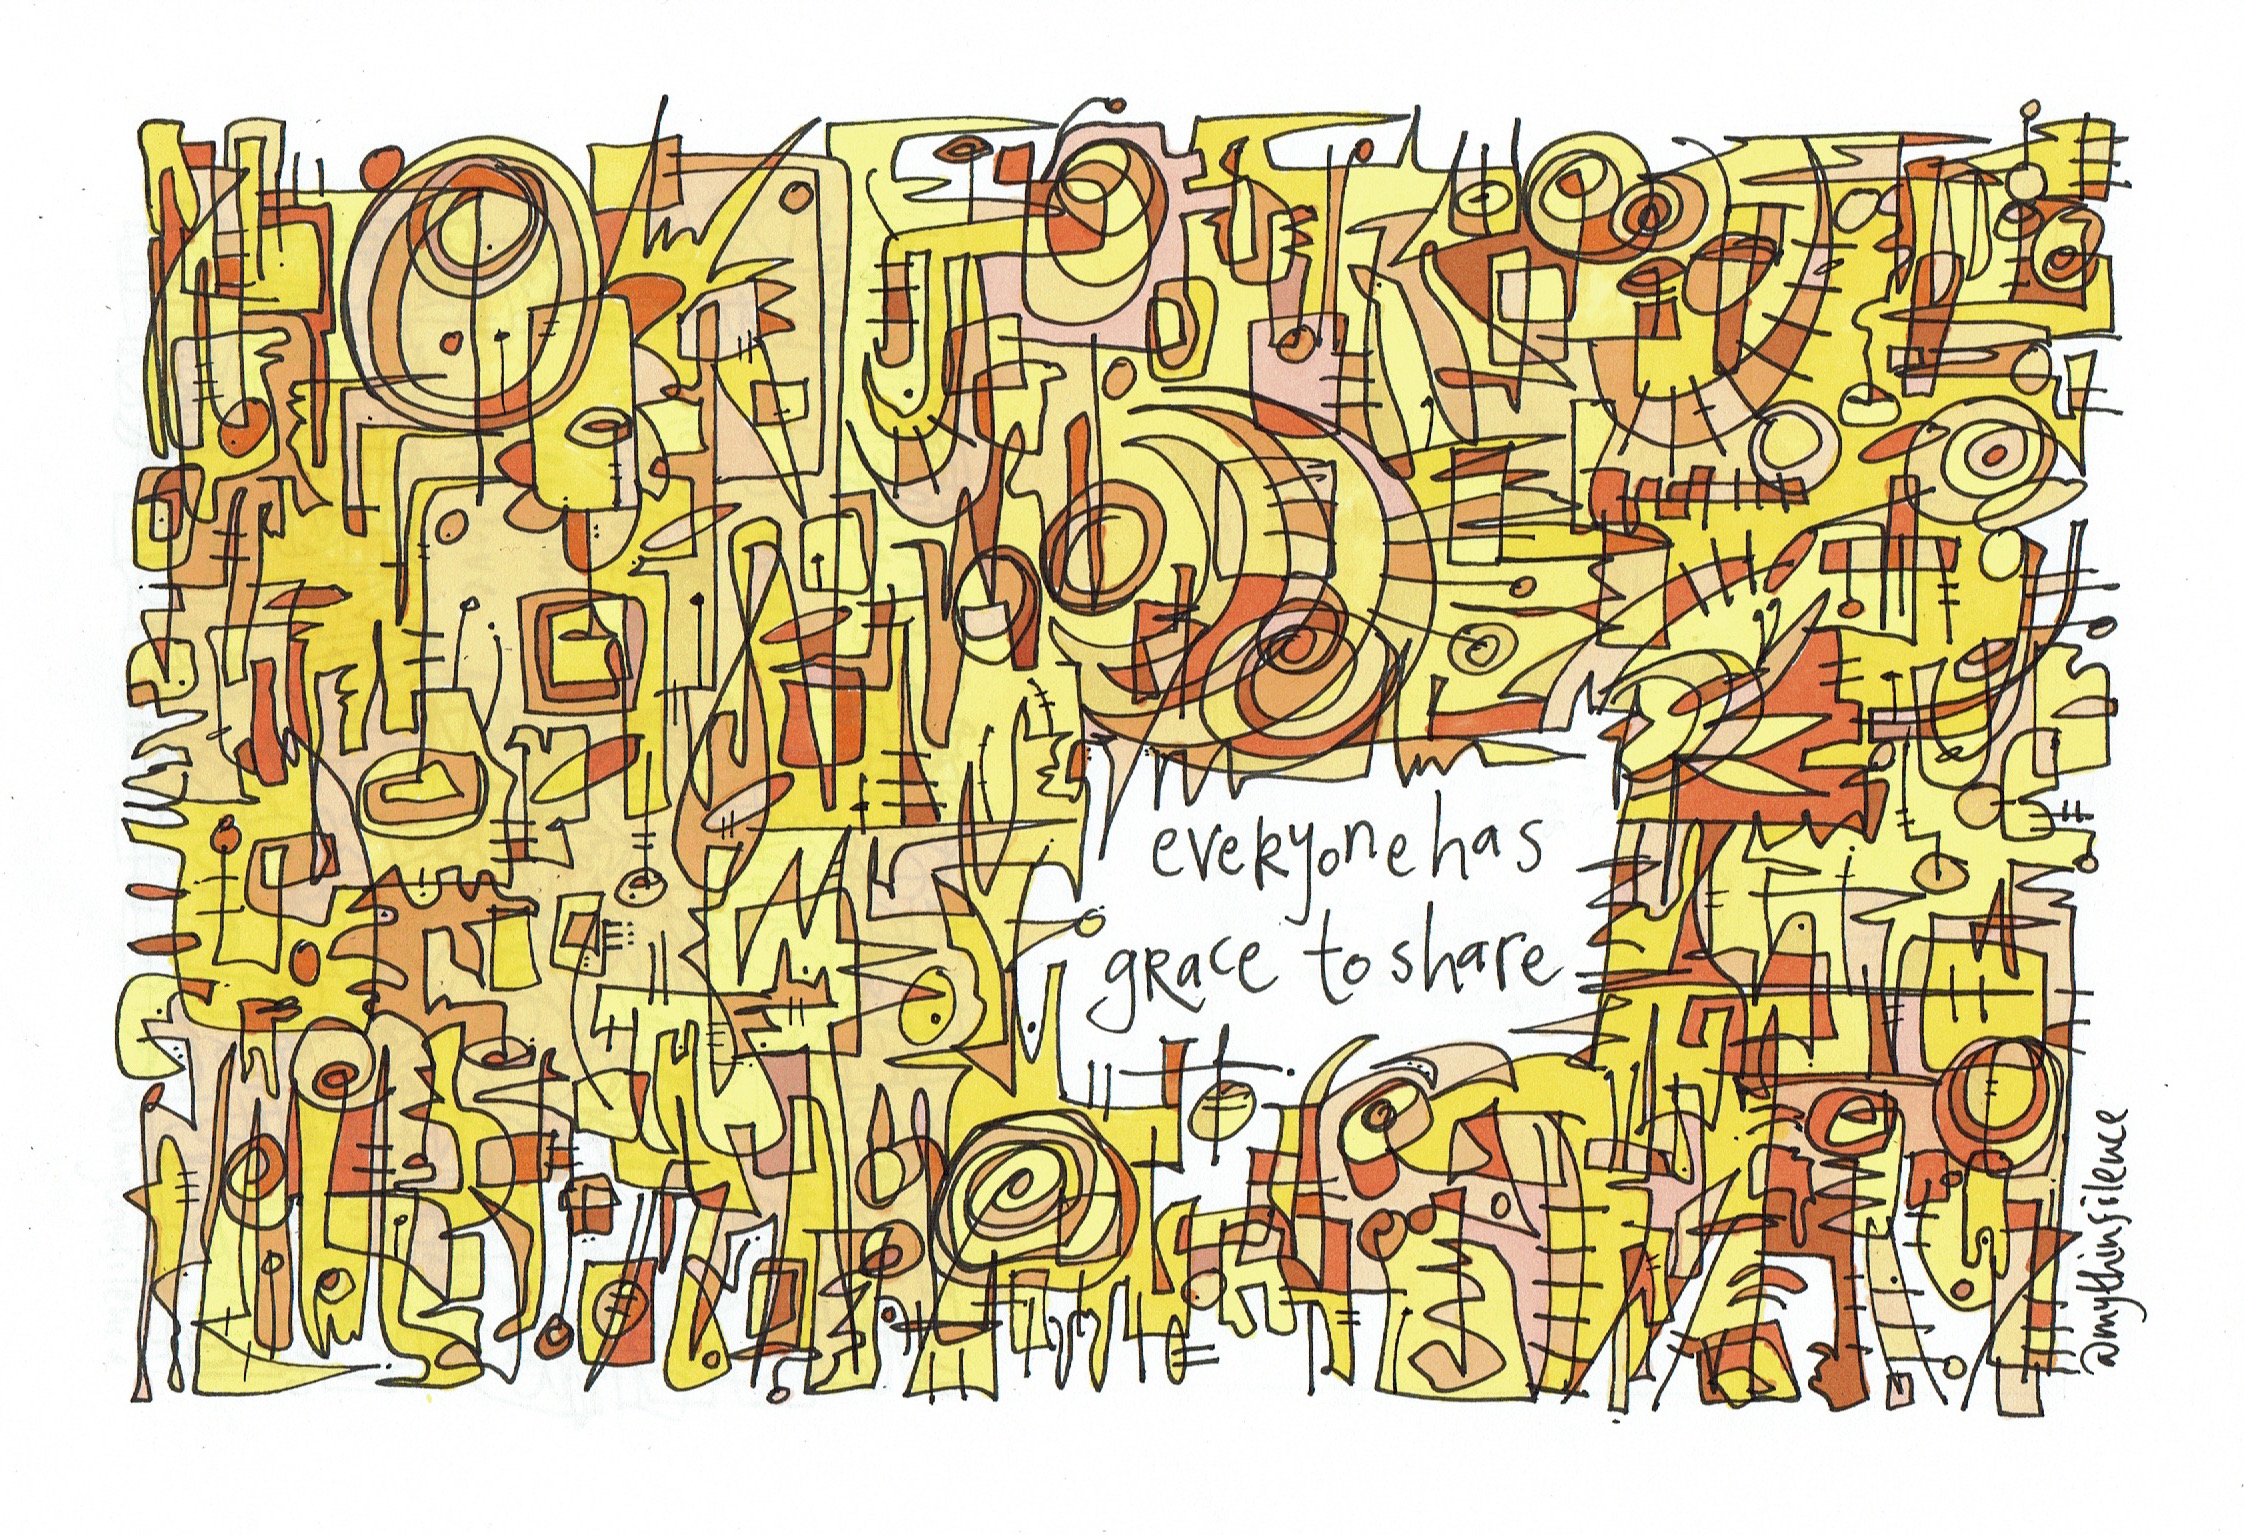 everyone has
grace to share
@mythinsilence